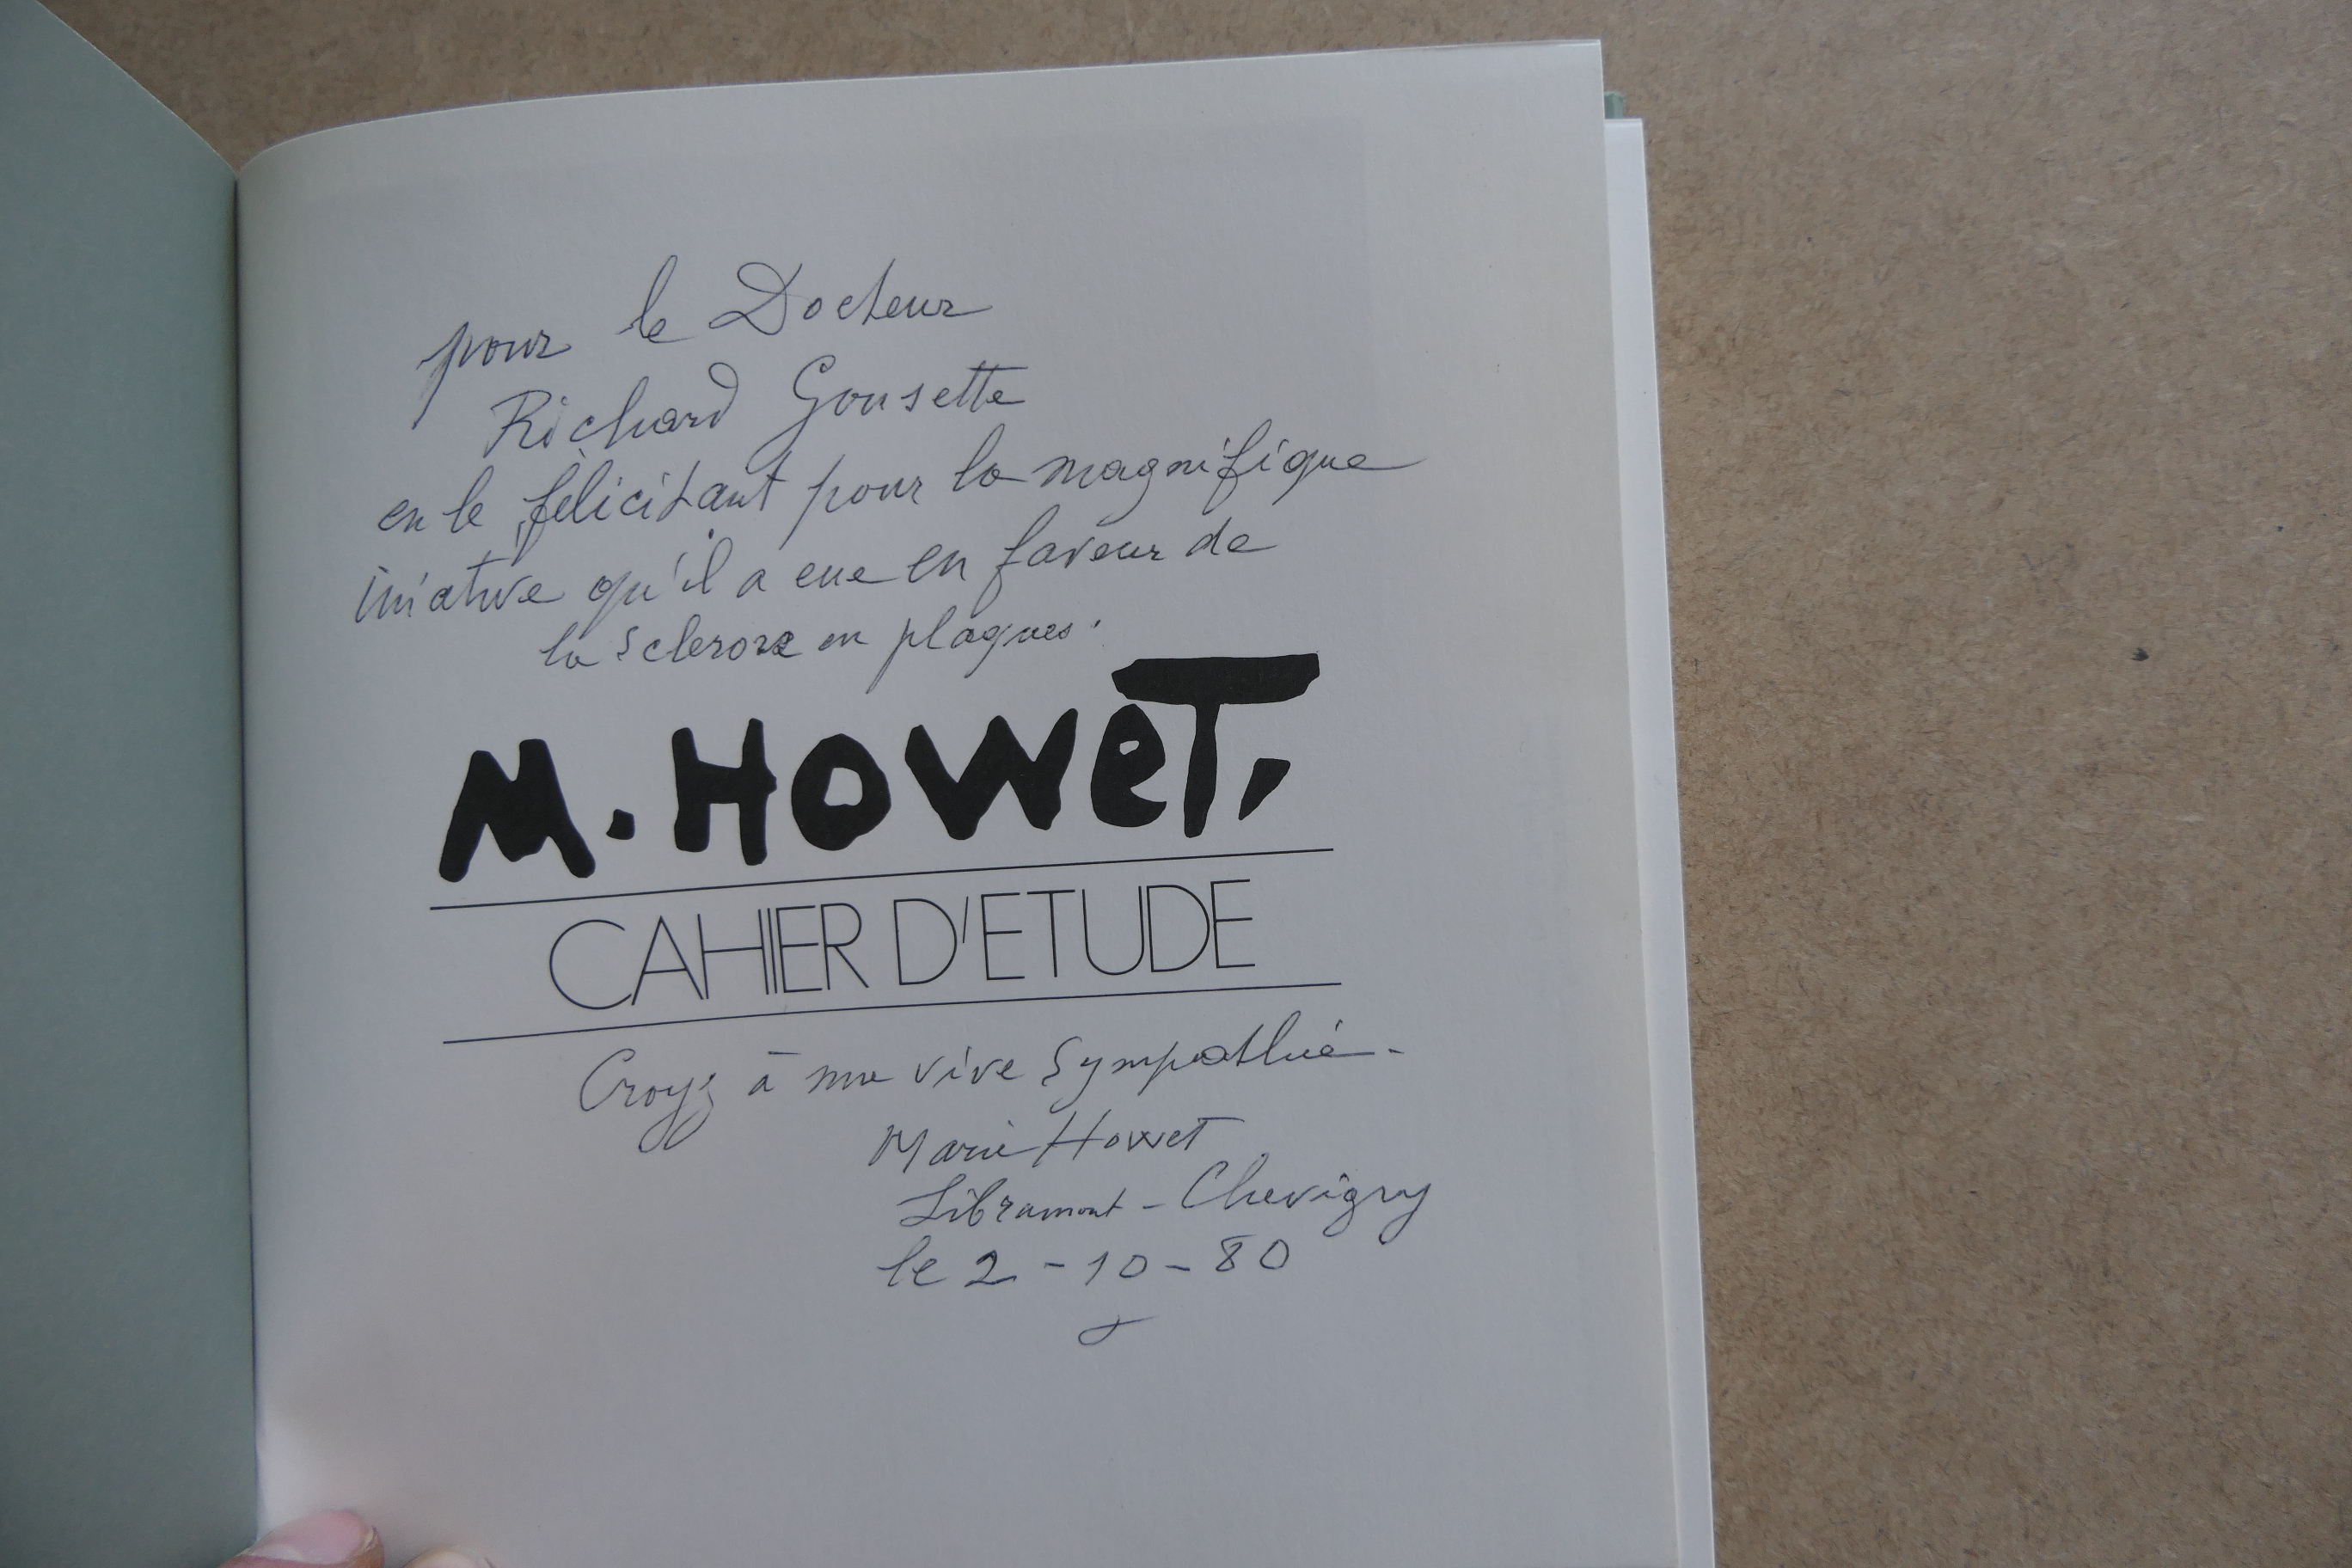 pour le Docteur
Richard Gonsette
en le félicitant pour la magnifique
iniative qu'il a eue en faveur de
la Sclerose en plaques.
M. HOWeT.
CAHIER D'ETUDE
Croyez à ma vive Sympathie -
Marie Howet
Libramont - Chevigny
le 2 - 10 - 80